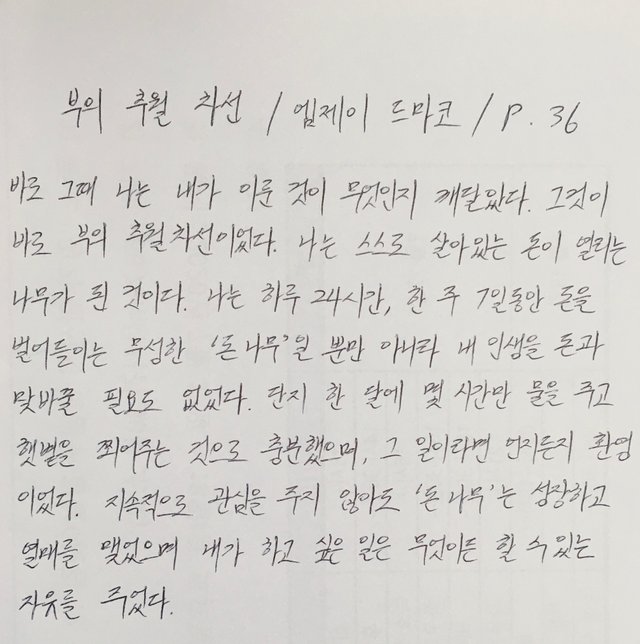 부의 추월 차선 / 엠제이 드마코 / P. 36
바로 그때 나는 내가 이룬 것이 무엇인지 깨달았다. 그것이
바로 부의 추월차선이었다. 나는 스스로 살아있는 돈이 열리는
나무가 된 것이다. 나는 하루 24시간, 한 주 7일동안 돈을
벌어들이는 무성한 '돈 나무'일 뿐만 아니라 내 인생을 돈과
맞바꿀 필요도 없었다. 단지 한 달에 몇 시간만 물을 주고
햇볕을 쬐어주는 것으로 충분했으며, 그 일이라면 언제든지 환영
이었다. 지속적으로 관심을 주지 않아도 '돈 나무'는 성장하고
열매를 맺었으며 내가 하고 싶은 일은 무엇이든 할 수 있는
자유를 주었다.